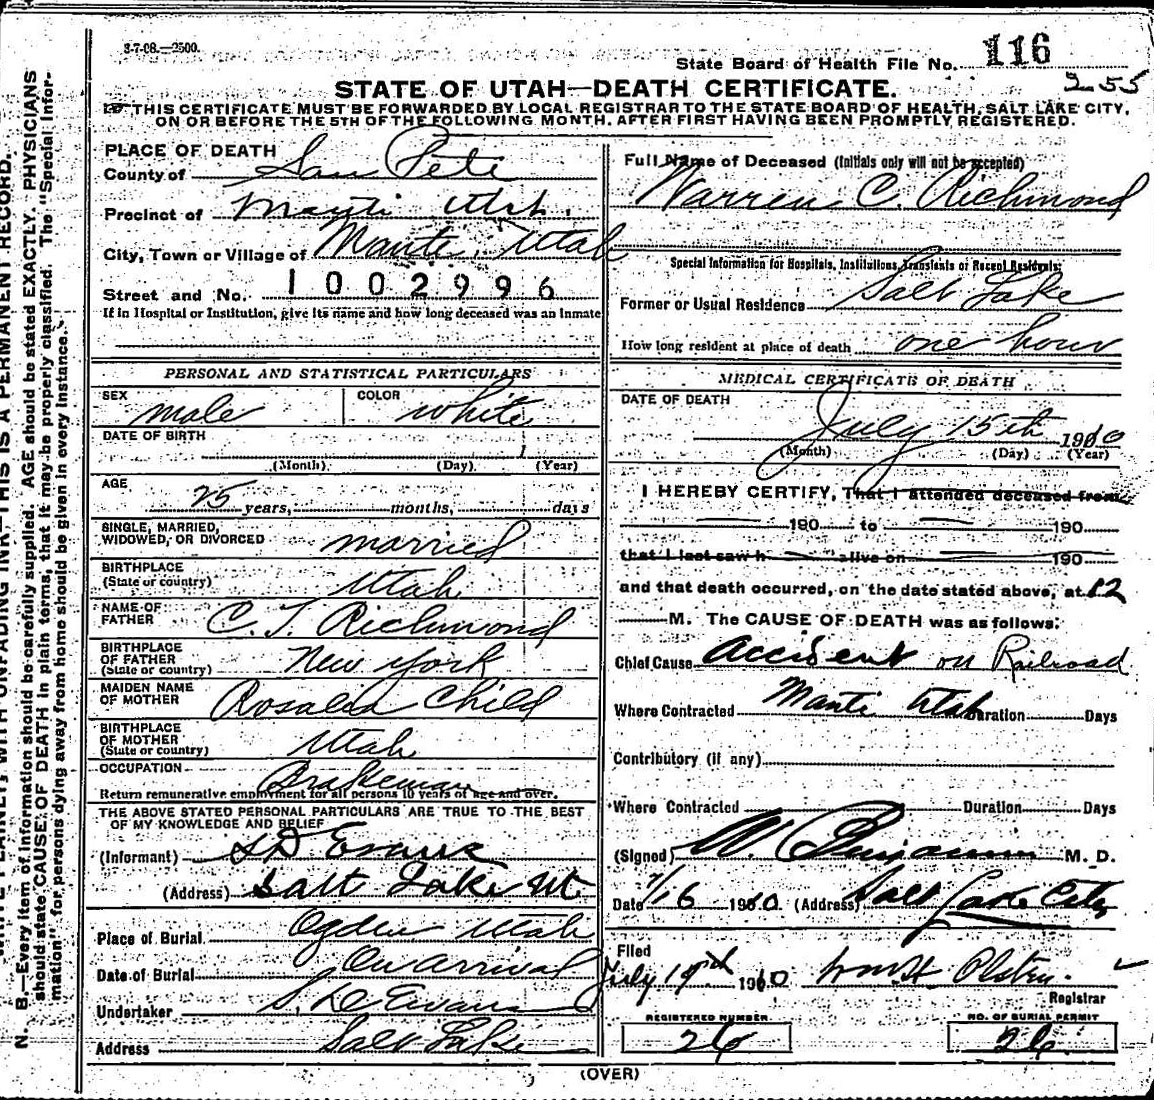 8-7-08.—2500.
State Board of Health File No. 116
255
STATE OF UTAH—DEATH CERTIFICATE.
THIS CERTIFICATE MUST BE FORWARDED BY LOCAL REGISTRAR TO THE STATE BOARD OF HEALTH, SALT LAKE CITY,
ON OR BEFORE THE 5TH OF THE FOLLOWING MONTH, AFTER FIRST HAVING BEEN PROMPTLY REGISTERED.
PLACE OF DEATH
County of San Pete
Precinct of Manti Utah.
City, Town or Village of Manti, Utah
Street and No. 1002996
If in Hospital or Institution, give its name and how long deceased was an inmate
PERSONAL AND STATISTICAL PARTICULARS
SEX male COLOR white
DATE OF BIRTH
(Month) (Day) (Year)
AGE
25 years, months, days
SINGLE, MARRIED,
WIDOWED, OR DIVORCED married
BIRTHPLACE
(State or country) Utah
NAME OF
FATHER C. T. Richmond
BIRTHPLACE
OF FATHER
(State or country) New York
MAIDEN NAME
OF MOTHER Rosalia Child
BIRTHPLACE
OF MOTHER
(State or country) Utah
OCCUPATION Brakeman
Return remunerative employment for all persons 10 years of age and over.
THE ABOVE STATED PERSONAL PARTICULARS ARE TRUE TO THE BEST
OF MY KNOWLEDGE AND BELIEF
(Informant) S D Evans
(Address) Salt Lake Ut
Place of Burial Ogden Utah
Date of Burial On Arrival
Undertaker S. D Evans
Address Salt Lake
Full Name of Deceased (Initials only will not be accepted)
Warren C. Richmond
Special Information for Hospitals, Institutions, Transients or Recent Residents:
Former or Usual Residence Salt Lake
How long resident at place of death one hour
MEDICAL CERTIFICATE OF DEATH
DATE OF DEATH
July 15th 1910
(Month) (Day) (Year)
I HEREBY CERTIFY, That I attended deceased from
190 to 190
that I last saw h alive on 190
and that death occurred, on the date stated above, at 12
M. The CAUSE OF DEATH was as follows:
Chief Cause Accident on Railroad
Where Contracted Manti Utah Duration Days
Contributory (if any)
Where Contracted Duration Days
(Signed) W. Benjamin M. D.
Date 7/16 1910 (Address) Salt Lake City
Filed
July 19 1910
Registrar
REGISTERED NUMBER
26
NO. OF BURIAL PERMIT
26.
(OVER)
N. B.—Every item of information should be carefully supplied. AGE should be stated EXACTLY. PHYSICIANS
should state CAUSE OF DEATH in plain terms, that it may be properly classified. The "Special Infor-
mation" for persons dying away from home should be given in every instance.
WITH UNFADING INK—THIS IS A PERMANENT RECORD.